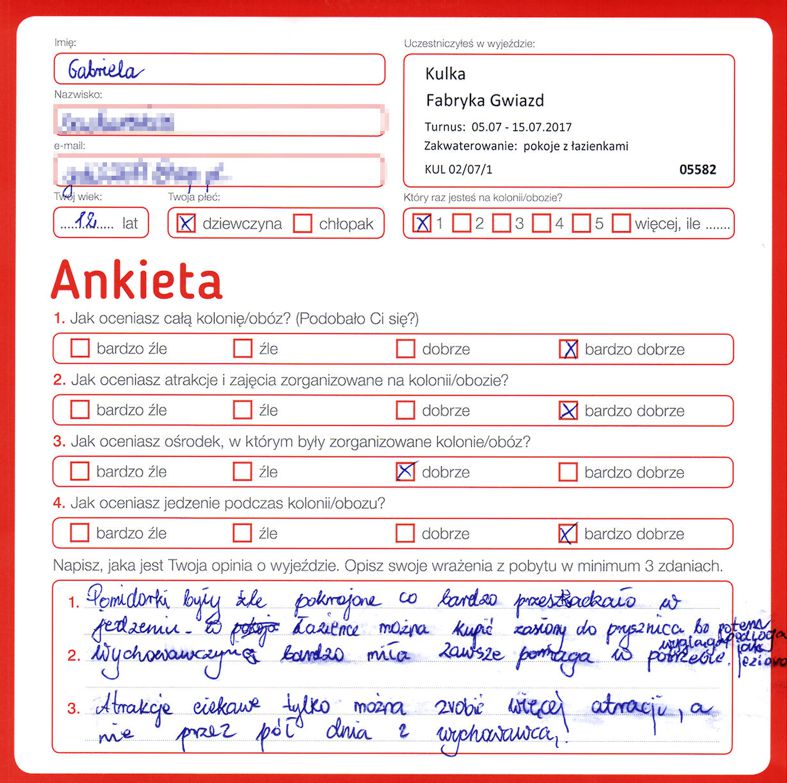 Imię:
Gabriela
Nazwisko:
e-mail:
Twój wiek:
12 lat
Twoja płeć:
dziewczyna chłopak
Uczestniczyłeś w wyjeździe:
Kulka
Fabryka Gwiazd
Turnus: 05.07 - 15.07.2017
Zakwaterowanie: pokoje z łazienkami
KUL 02/07/1 05582
Który raz jesteś na kolonii/obozie?
1 2 3 4 5 więcej, ile .......
Ankieta
1. Jak oceniasz całą kolonię/obóz? (Podobało Ci się?)
bardzo źle źle dobrze bardzo dobrze
2. Jak oceniasz atrakcje i zajęcia zorganizowane na kolonii/obozie?
bardzo źle źle dobrze bardzo dobrze
3. Jak oceniasz ośrodek, w którym były zorganizowane kolonie/obóz?
bardzo źle źle dobrze bardzo dobrze
4. Jak oceniasz jedzenie podczas kolonii/obozu?
bardzo źle źle dobrze bardzo dobrze
Napisz, jaka jest Twoja opinia o wyjeździe. Opisz swoje wrażenia z pobytu w minimum 3 zdaniach.
1. Pomidorki były źle pokrojone co bardzo przeszkadzało w
jedzeniu. W łazience można kupić zasłony do prysznica bo potem
podłoga
wygląda jak
jezioro
2. Wychowawczyni bardzo miła zawsze pomaga w potrzebie.
3. Atrakcje ciekawe tylko można zrobić więcej atrakcji, a
nie przez pół dnia z wychowawcą!